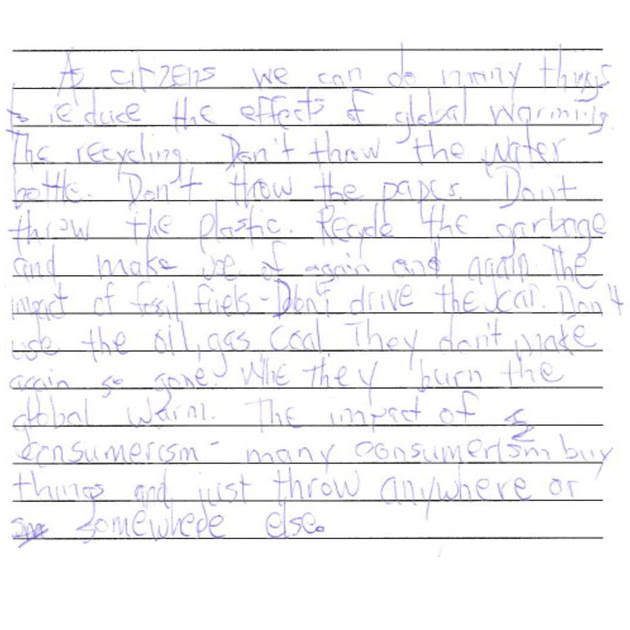 As citizens we can do many things
to reduce the effects of global warming.
The recycling. Don't throw the water
bottle. Don't throw the paper. Don't
throw the plastic. Recycle the garbage
and make use of again and again. The
impact of fossil fuels - Don't drive the car. Don't
use the oil, gas, coal. They don't make
again so gone. Whe they burn the
global warm. The impact of
consumerism - many consumerism buy
things and just throw anywhere or
somewhede else.